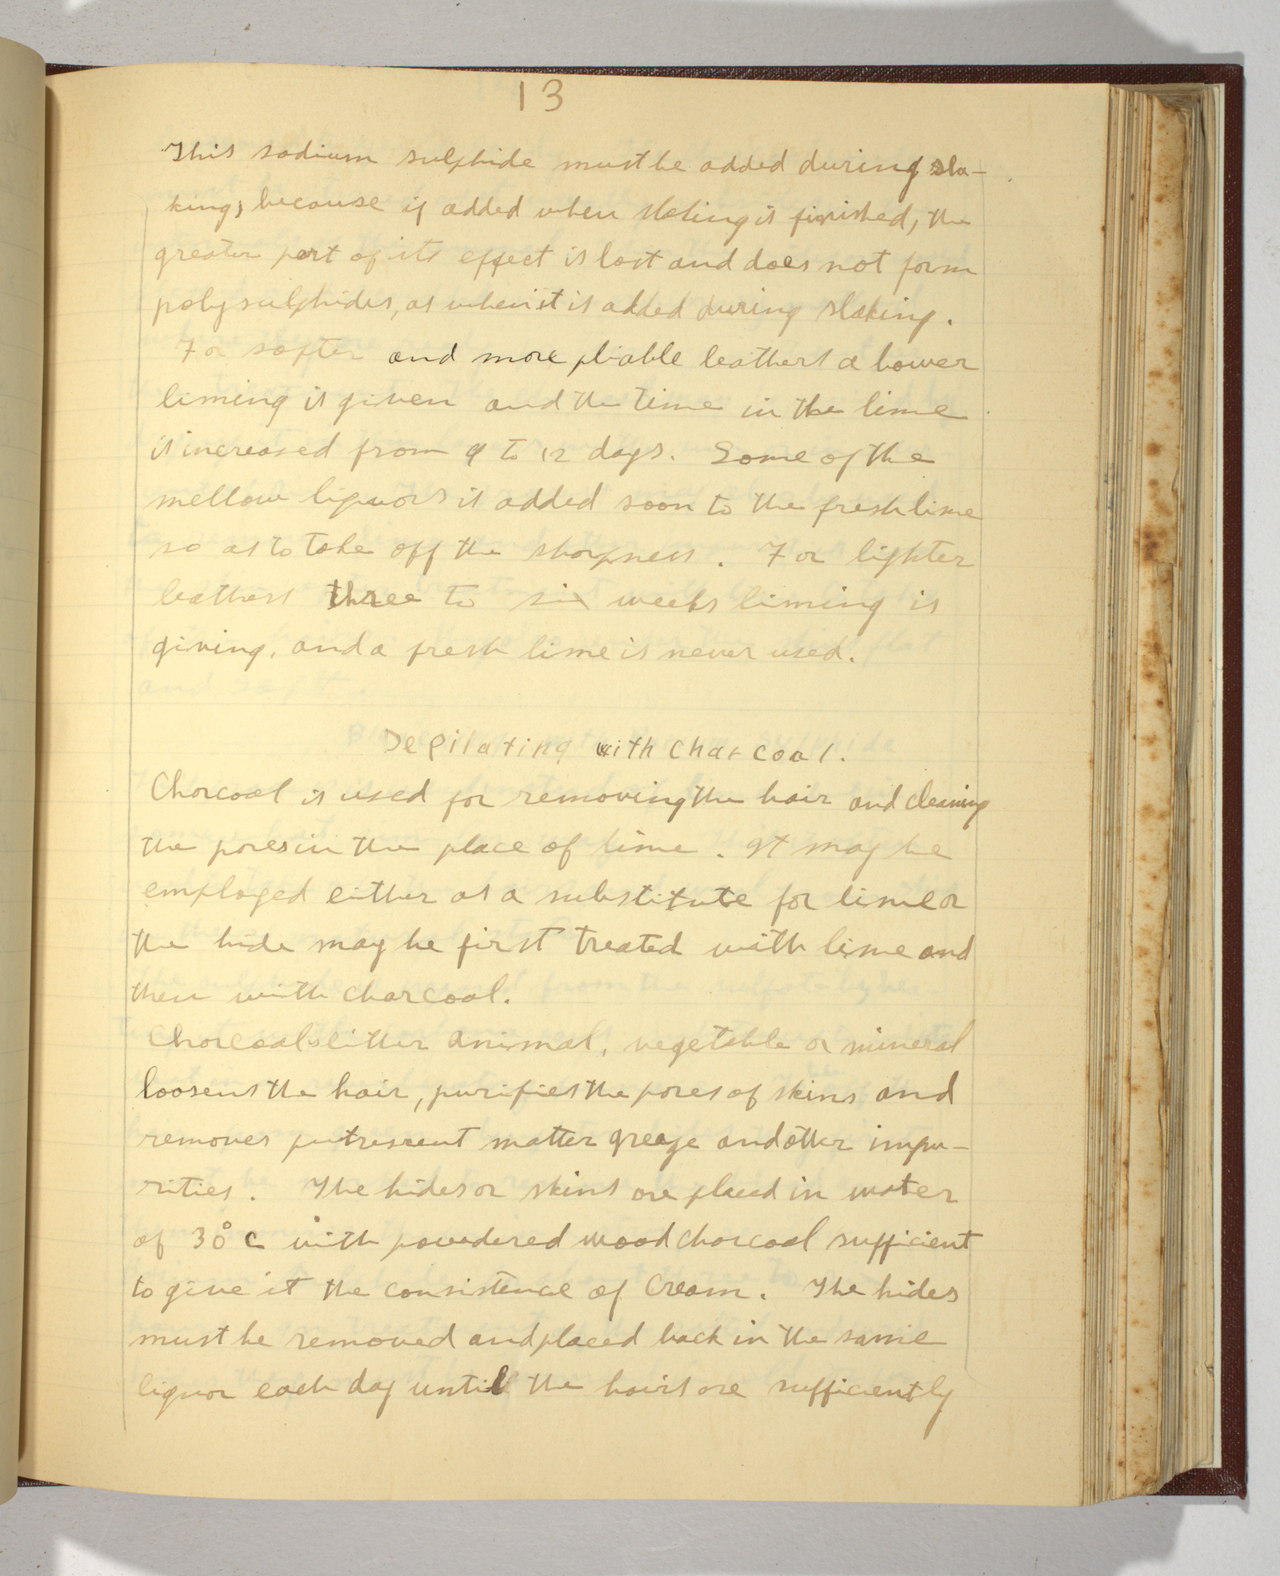 13
This sodium sulphide must be added during sla-
king, because if added when slaking is finished, the
greater part of its effect is lost and does not form
polysulphides, as when it is added during slaking.
For softer and more pliable leathers a lower
liming is given and the time in the lime
is increased from 9 to 12 days. Some of the
mellow liquors is added soon to the fresh lime
so as to take off the sharpness. For lighter
leathers three to six weeks liming is
giving, and a fresh lime is never used.
Depilating with charcoal.
Charcoal is used for removing the hair and cleaning
the pores in the place of lime. It may be
employed either as a substitute for lime or
the hide may be first treated with lime and
then with charcoal.
Charcoals eitter animal, vegetable or mineral
loosens the hair, purifies the pores of skins and
removes putrescent matter grease and other impu-
rities. The hides or skins are placed in water
of 30° C with powdered wood charcoal sufficient
to give it the consistence of cream. The hides
must be removed and placed back in the same
liquor each day until the hairs are sufficiently